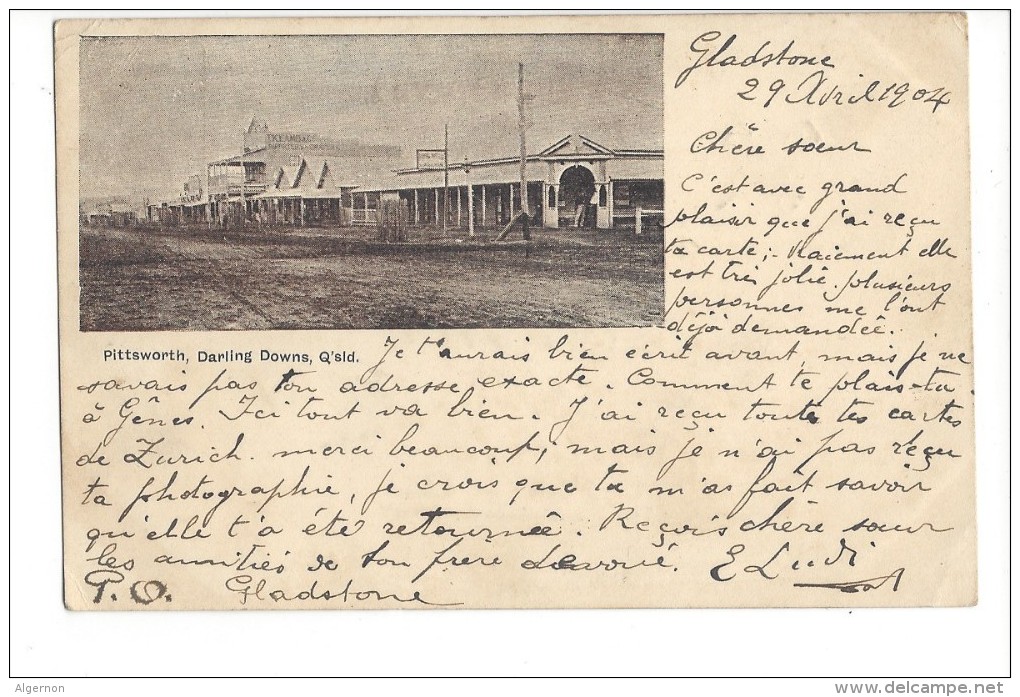 Gladstone
29 Avril 1904
Chère soeur
C'est avec grand
plaisir que j'ai reçu
ta carte; - Vraiement elle
est très jolie. plusieurs
personnes me l'ont
déjà demandée.
Pittsworth, Darling Downs, Q'sld.
Je t'aurais bien écrit avant, mais je ne
savais pas ton adresse exacte. Comment te plais-tu
à Gênes. Ici tout va bien. J'ai reçu toutes tes cartes
de Zurich. merci beaucoup, mais je n'ai pas reçu
ta photographie, je crois que tu m'as fait savoir
qu'elle t'a été retournée. Reçois chère soeur
les amitiés de ton frere devoué. E Ludi
P.O. Gladstone
Algernon
www.delcampe.net